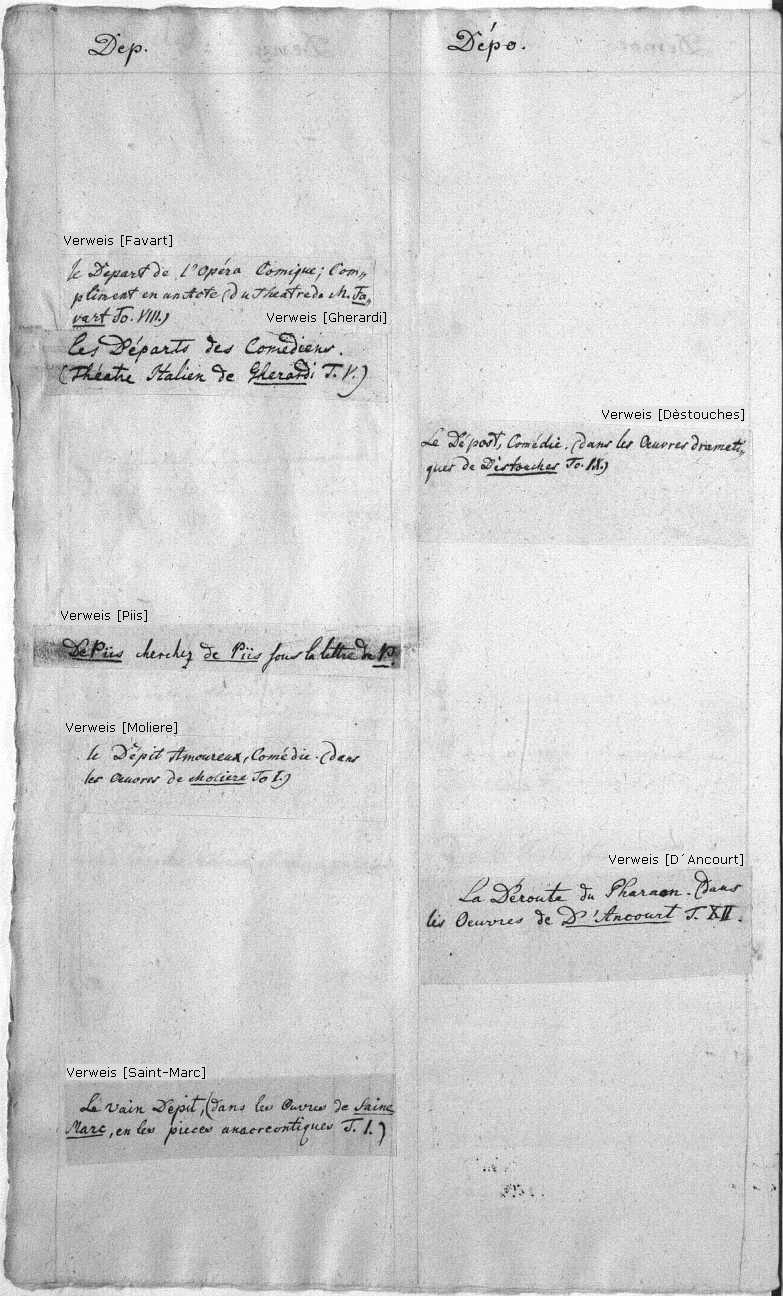 Dep.
Verweis [Favart]
le Depart de l'Opéra Comique; Com„
pliment en un Acte (du Theatre de M. Fa„
vart To. VIII.)
Verweis [Gherardi]
les Départs des Comédiens.
(Théatre Italien de Gherardi T. V.)
Verweis [Piis]
De Piis cherchez de Piis sous la lettre de P.
Verweis [Moliere]
le Dépit Amoureux, Comédie. (dans
les Œuvres de Moliere To I.)
Verweis [Saint-Marc]
Le vain Dépit, (dans les Œuvres de Saint
Marc, en les pieces anacreontiques T. I.)
Dépo.
Verweis [Dèstouches]
Le Dépost, Comédie. (dans les Œuvres dramati„
ques de Déstouches To. IX.)
Verweis [D´Ancourt]
La Déroute du Pharaon. (dans
lés Oeuvres de D'Ancourt T. XII.